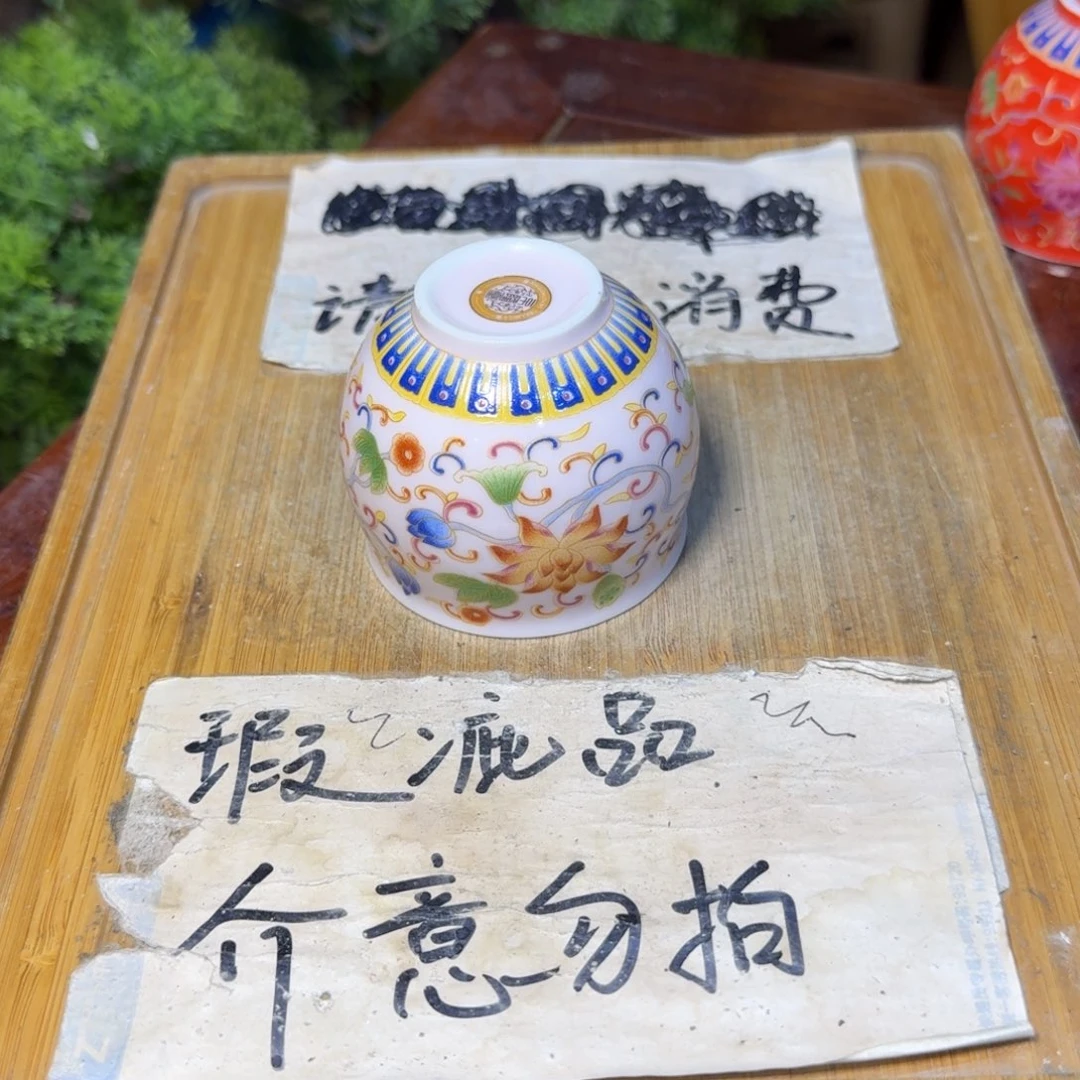 请 消费
瑕疵品
介意勿拍